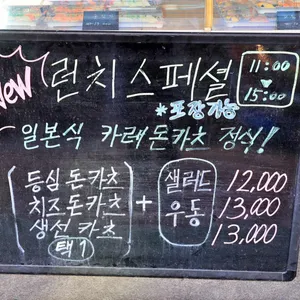 New 런치 스페셜 11:00 ▼ 15:00
*포장가능
일본식 카레돈카츠 정식!
등심 돈카츠 + 샐러드 12,000
치즈 돈카츠 우동 13,000
생선 카츠 13,000
택1